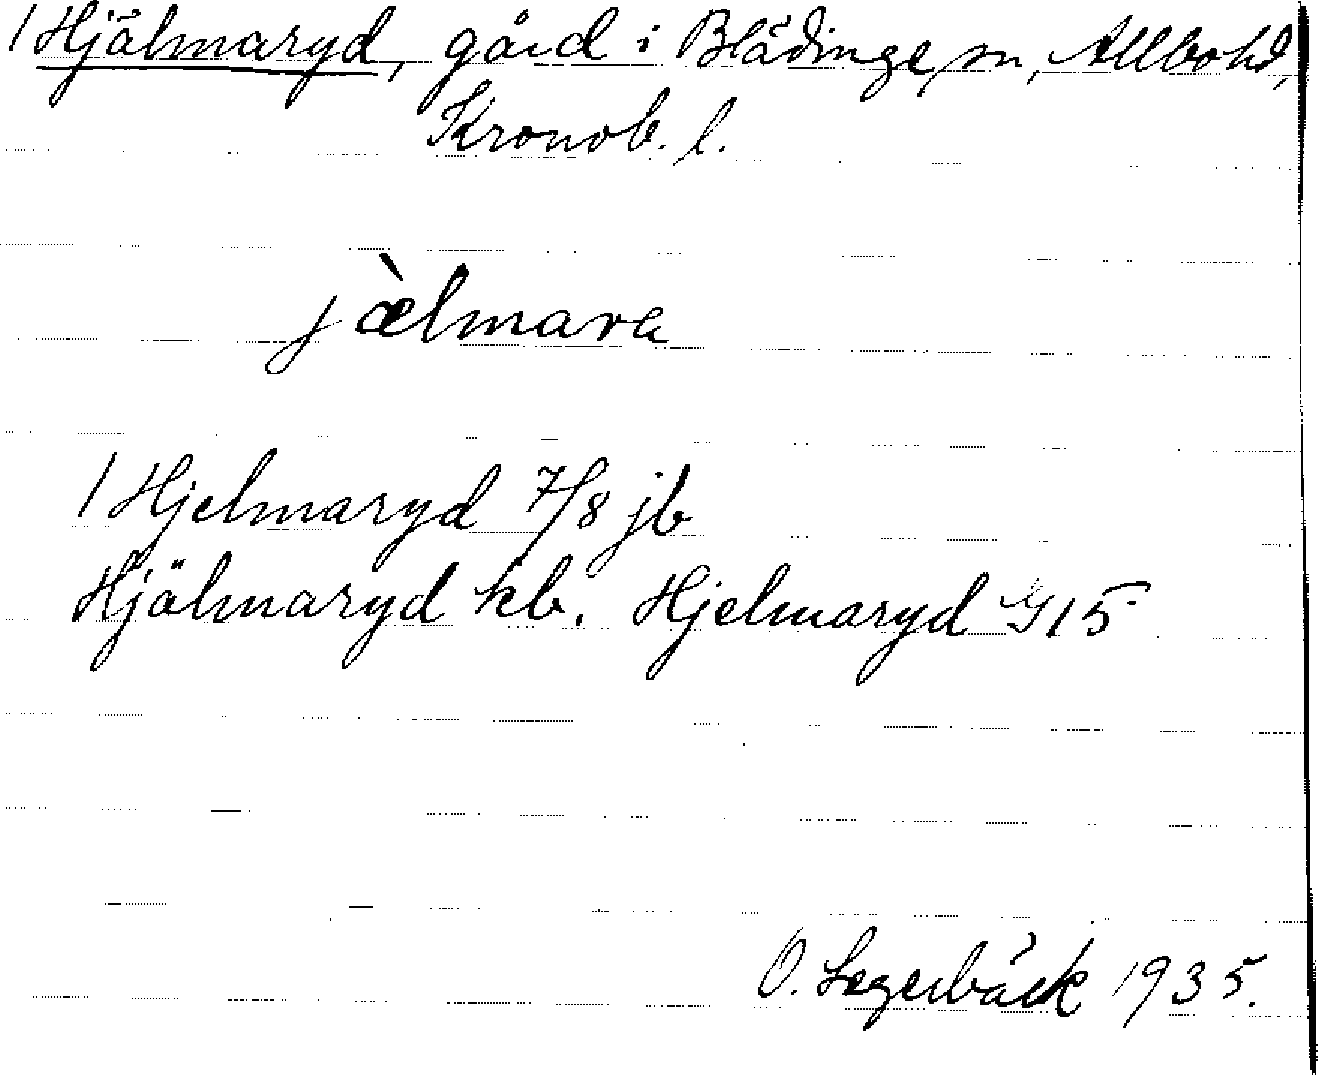 / Hjälmaryd, gård i Blädinge sn, Allbo hd,
Kronob. l.
jæ̀lmara
/ Hjelmaryd 7/8 jb
Hjälmaryd kb. Hjelmaryd G15
O. Segerbäck 1935.